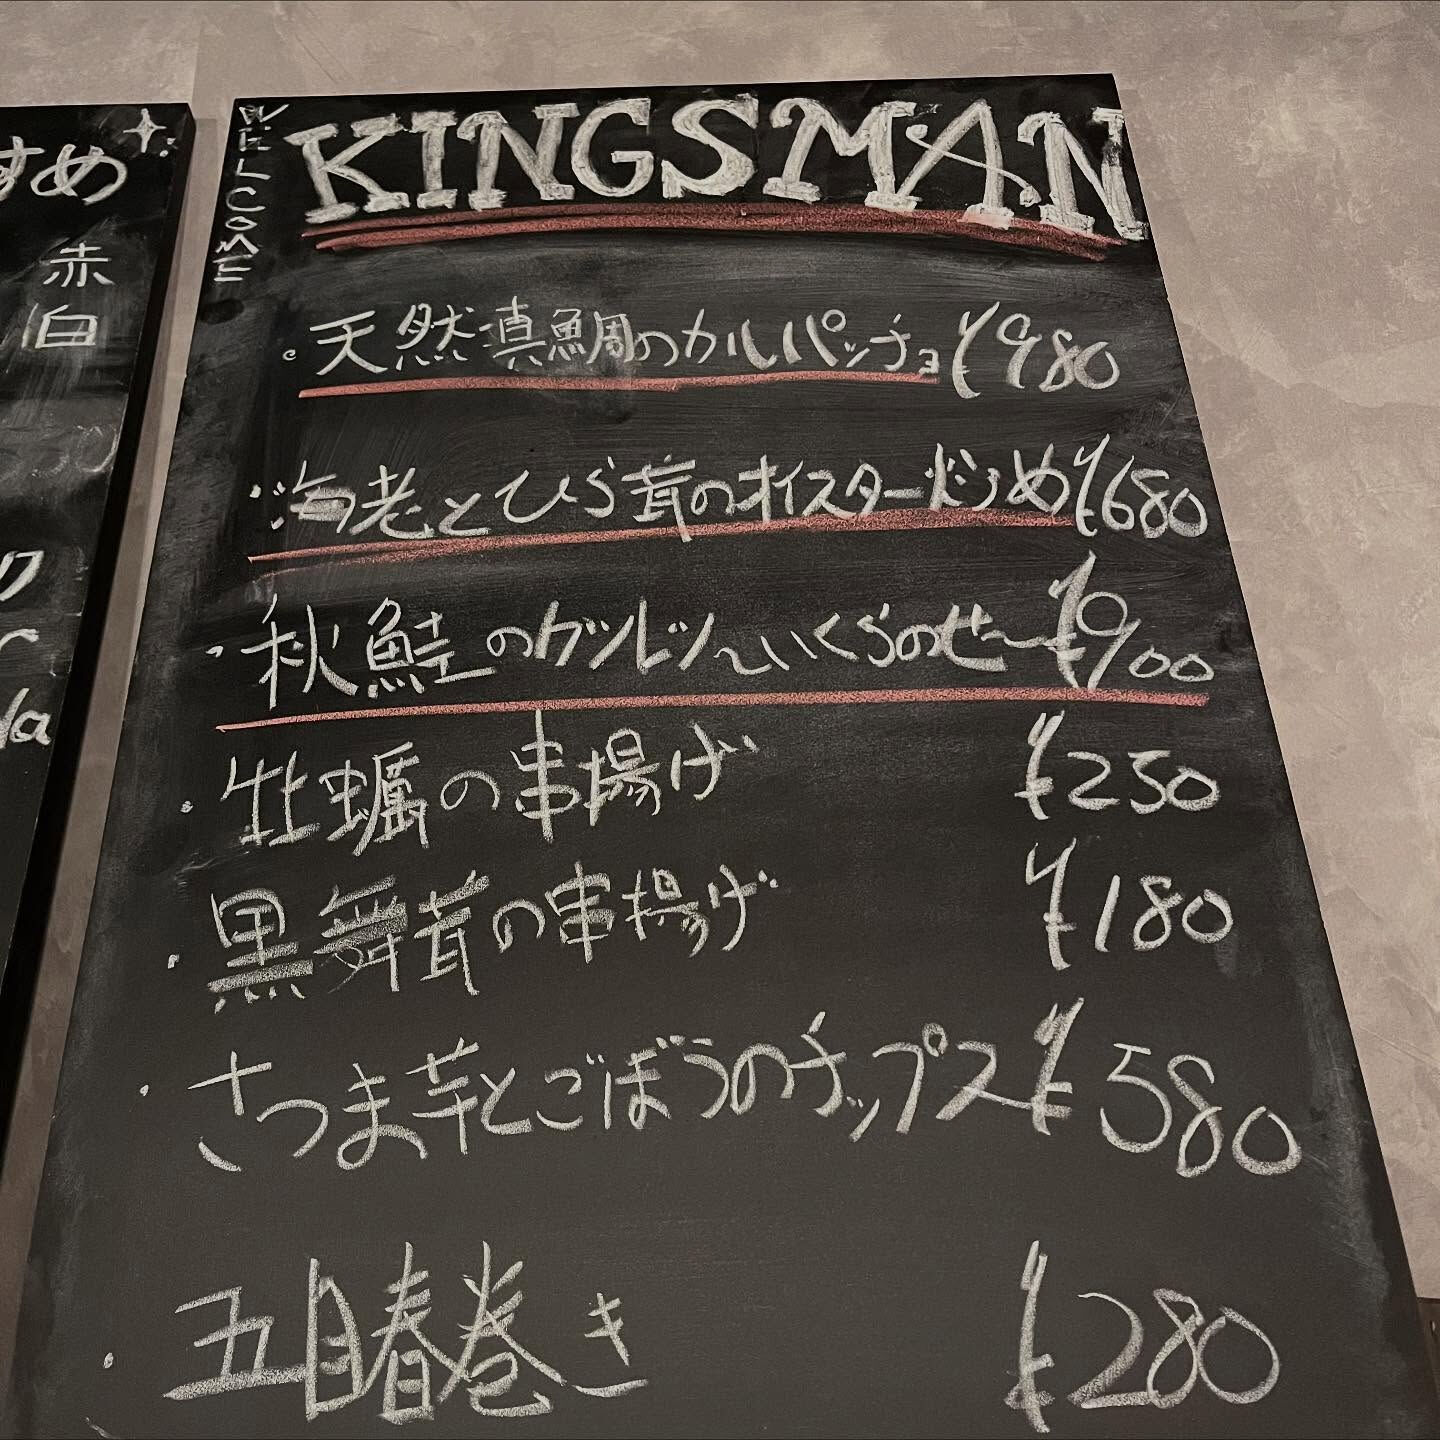 すすめ
赤
白
WELCOME
KINGSMAN
・天然真鯛のカルパッチョ ¥980
・海老とひら茸のオイスター炒め ¥680
・秋鮭のカツレツ〜いくらのせ〜 ¥900
・牡蠣の串揚げ ¥250
・黒舞茸の串揚げ ¥180
・さつま芋とごぼうのチップス ¥580
・五目春巻き ¥280